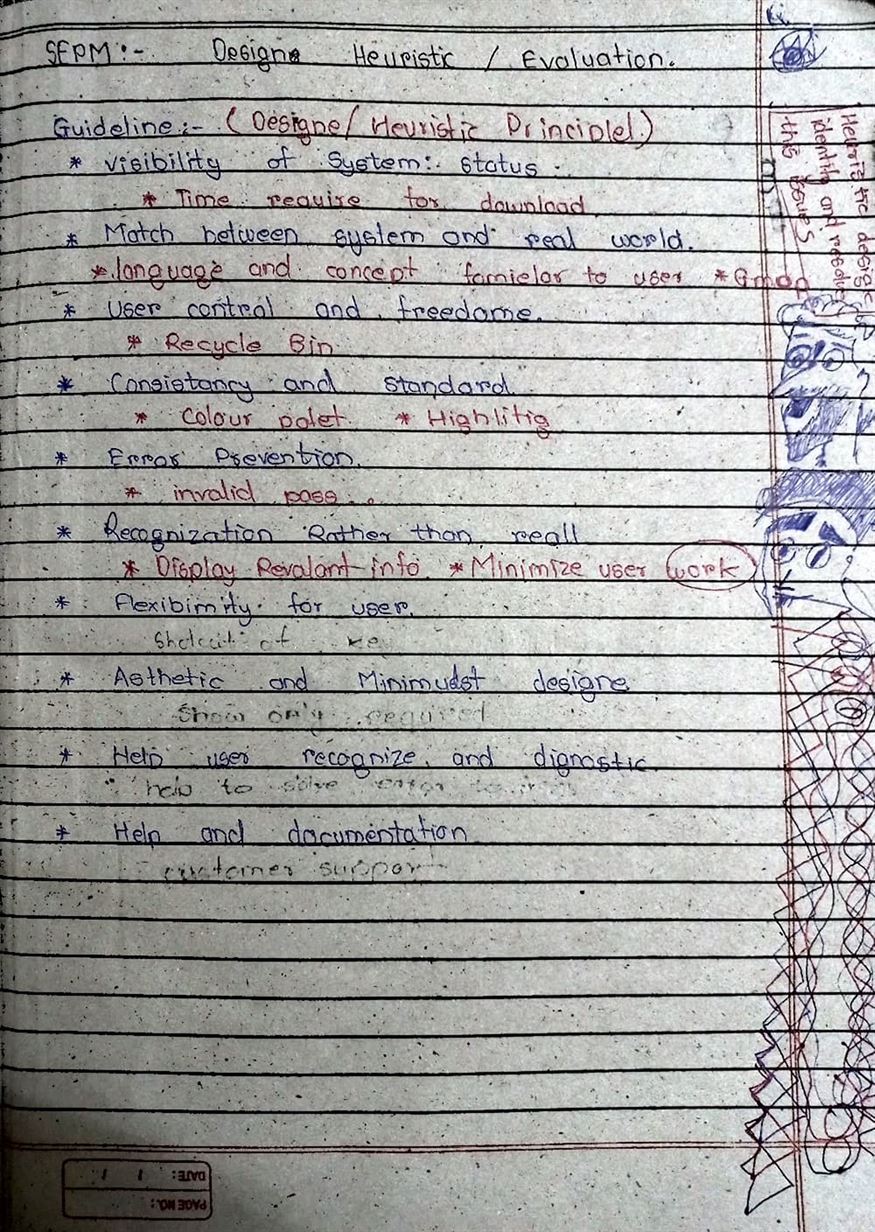 SEPM:- Designe Heuristic / Evaluation.
Guideline:- (Designe/Heuristic Principlel)
* visibility of System: status.
* Time require for download
* Match between system and real world.
* language and concept famielar to user * Gmap
* User control and freedome.
* Recycle Bin
* Consistancy and Standard
* Colour palet * Highlitig
* Error Prevention.
* invalid pass..
* Recognization Rather than reall
* Display Revalant info * Minimize user work
* flexibimity for user.
of ke
* Asthetic and Minimudst designe
Show only required
* Help user recognize and dignostic.
help to solve error
* Help and documentation
customer support
Heuristic designe
identify and resolve
this issues
DATE: / /
PAGE NO.: